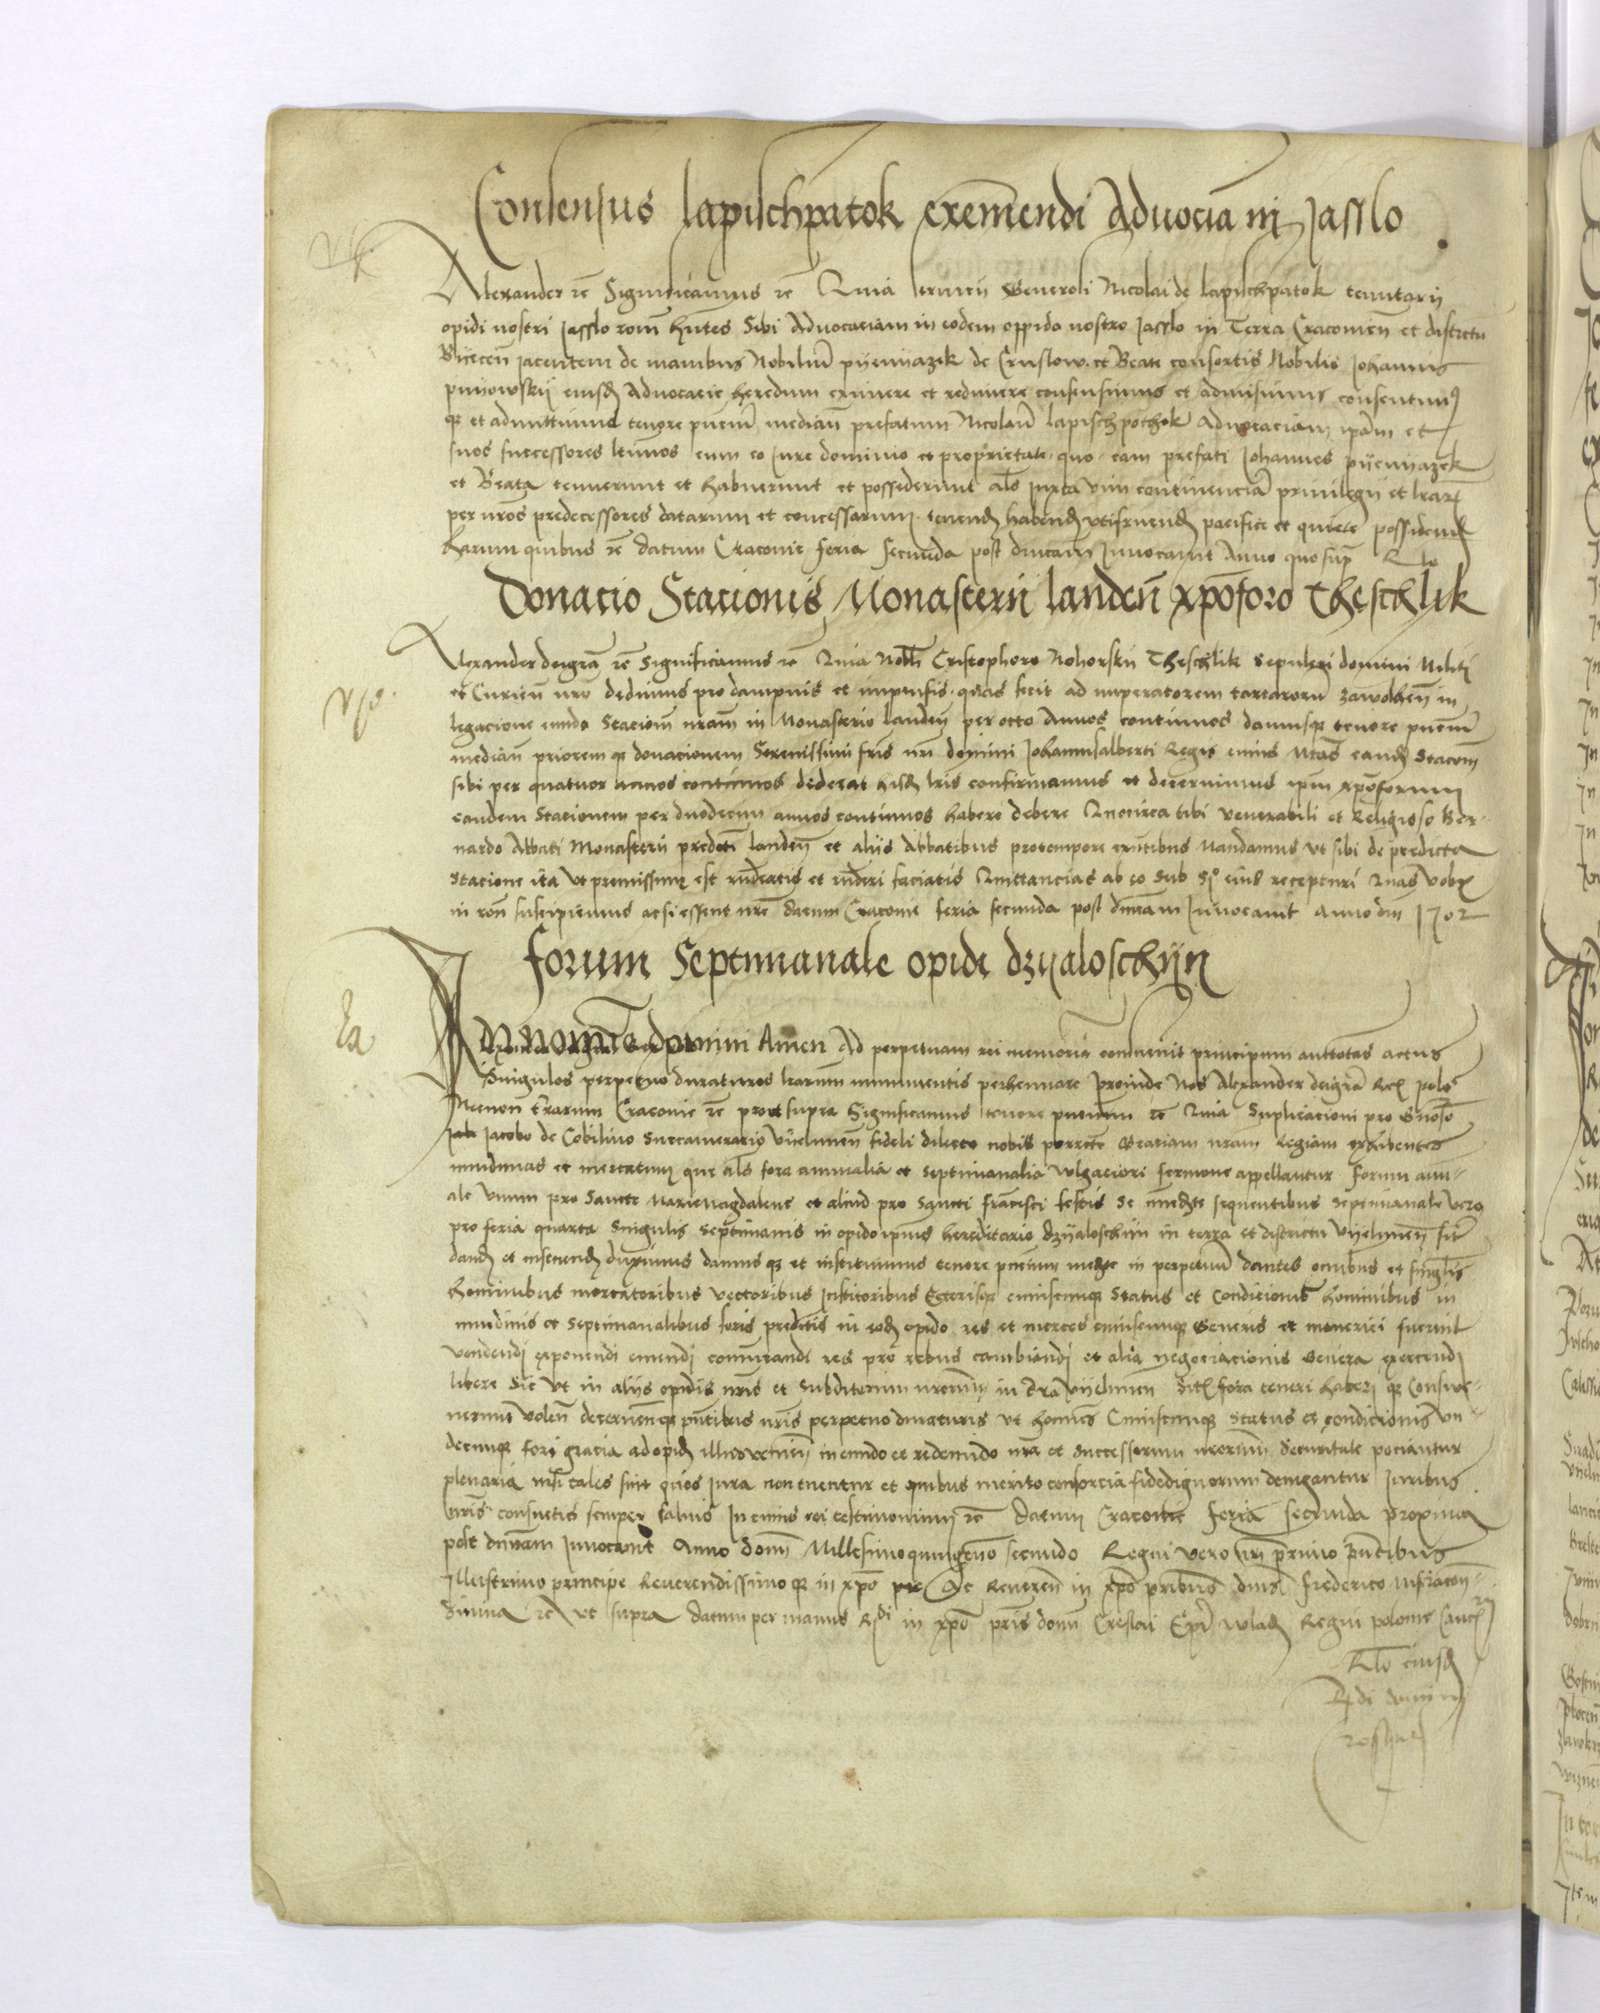 Consensus Lapischpatok exemendi Advocia in Jasslo
Alexander rē Significamus rē Quia Generosi Nicolai de Lapischpatok tenutarii
opidi nostri Jasslo rom hntes Sibi Advocaciam in eodem oppido nostro Jasslo in Terra Cracoviēn et districtu
Byecēn jacentem de manibus Nobiliū pyenyazek de Cruslow et Beate consortis Nobilis Johannis
eiusdꝫ Advocacie heredum eximere et redimere consensimus et admisimus consentimꝰ
qꝫ et admittimus tenore pñciū mediañ prefatum Nicolaū Lapischpothok Advocaciam ipam et
suos successores eum eo Jure dominio et proprietate quo eam prefati Johannes pyenyazek
et Beata tenuerunt et habuerunt et possederunt als juxta vim continenciā privilegii et lrarꝫ
per nros predecessores datarum et concessarum tenendꝫ habendꝫ utifruendꝫ pacifice et quiete possidendꝫ
Harum quibus rē datum Cracovie feria secunda post dnicam Invocavit Anno quo sup̄ Rlo
Donacio Stacionis Monasterii landēn xpōforo Theschlik
Alexander deigrā rē Significamus rē Quia Nobli Cristophoro Theschlik Sepulcri domini Militi
et Curieñ nro dedimus pro dampnis et impensis quas fecit ad imperatorem tartarorū zawolhēn in
legacione eundo Stacioñ nrām in Monasterio landēn per octo Annos continuos damusqꝫ tenore pñciū
mediañ priorem qꝫ donacionem Serenissimi fris nri domini Johannisalberti Regis cuius Mtas eandꝫ Stacoñ
sibi per quatuor annos continuos dederat hisdꝫ lris confirmamus et decernimus ipm xpōforum
eandem Stacionem per duodecim annos continuos habere debere Quocirca tibi venerabili et Religioso Ber-
nardo Abbati Monasterii predcti landēn et aliis Abbatibus protempore exntibus Mandamus ut sibi de predicta
Stacione ita ut premissumꝫ est rñdeatis et rñderi faciatis Quittancias ab eo sub recepturi Quas vobꝫ
in roñ suscipiemus ac si essent nre datum Cracovie feria secunda post dnicam Invocavit Anno dni 1502
Forum Septimanale opidi dzyaloschyn
In nomie domini Amen Ad perpetuam rei memoriā convenit principum auttotas actus
Singulos perpetuo duraturos lrarum munimentis perhennare Proinde Nos Alexander deigrā Rex polo
Necnon trarum Cracovie rē prout supra Significamus tenore pñcium rē Quia Suplicacioni pro Gnoso
Jacobo de Cobilino Succamerario Vyelunēn fideli dilecto nobis porrecte Graciam nrām Regiam exhibentes
nundinas et mercatum que als fora annualia et Septimanalia vulgaciori sermone appellantur Forum anu-
ale Unum pro Sancte Marie Magdalene et aliud pro Sancti francisci festis se imedte sequentibus septimanale vero
pro feria quarta Singulis Septimanis in opido ipius hereditario dzyaloschyn in terra et districtu Vyelunēn
dandꝫ et instituendꝫ duximus damus qꝫ et instituimus tenore pñcium in perpetuū dantes omibus et singlis
Hominibus mercatoribus vectoribus institoribus Ceterisqꝫ cuiuscunqꝫ Status et Condicionis hominibus in
nundinis et Septimanalibus foris predctis in eodꝫ opido res et merces cuiuscunqꝫ Generis et maneriei fuerint
vendendi exponendi emendi comutandi res pro rebus cambiandi et alia negociacionis Genera exercendi
libere Sic ut in aliis opidis nris et Subditorum nrorum in tra Vyelunēn fora teneri haberi qꝫ Consue-
verunt Volēn decernēnqꝫ pñtibus nris perpetuo duraturis ut homies Cuiuscunqꝫ Status et condicionis un
decunqꝫ fori gracia ad opidꝫ illud venieñ in eundo et redeundo nra et Successorum nrorum Securitate pociantur
plenaria nisi tales sint quos Jura non tuentur et quibus merito consorcia fidedignorum denegantur Juribus
nris consuetis semper salvis In cuius rei testimonium rē Datum Cracovie Feria Secunda proxima
post dnicam Invocavit Anno domi Millesimoquingeno secundo Regni vero nri primo Pñtibus
Illustrimo principe Reverendissimo qꝫ in xpo Ac Reverēn in xpo pribus dnis Frederico Miseracon
divina rē ut supra datum per manus Rdi in xpo pris domi Creslai Epi wladꝫ Regni polonie Canc
Rlo eiusdꝫ
Rdi domini
Creslai